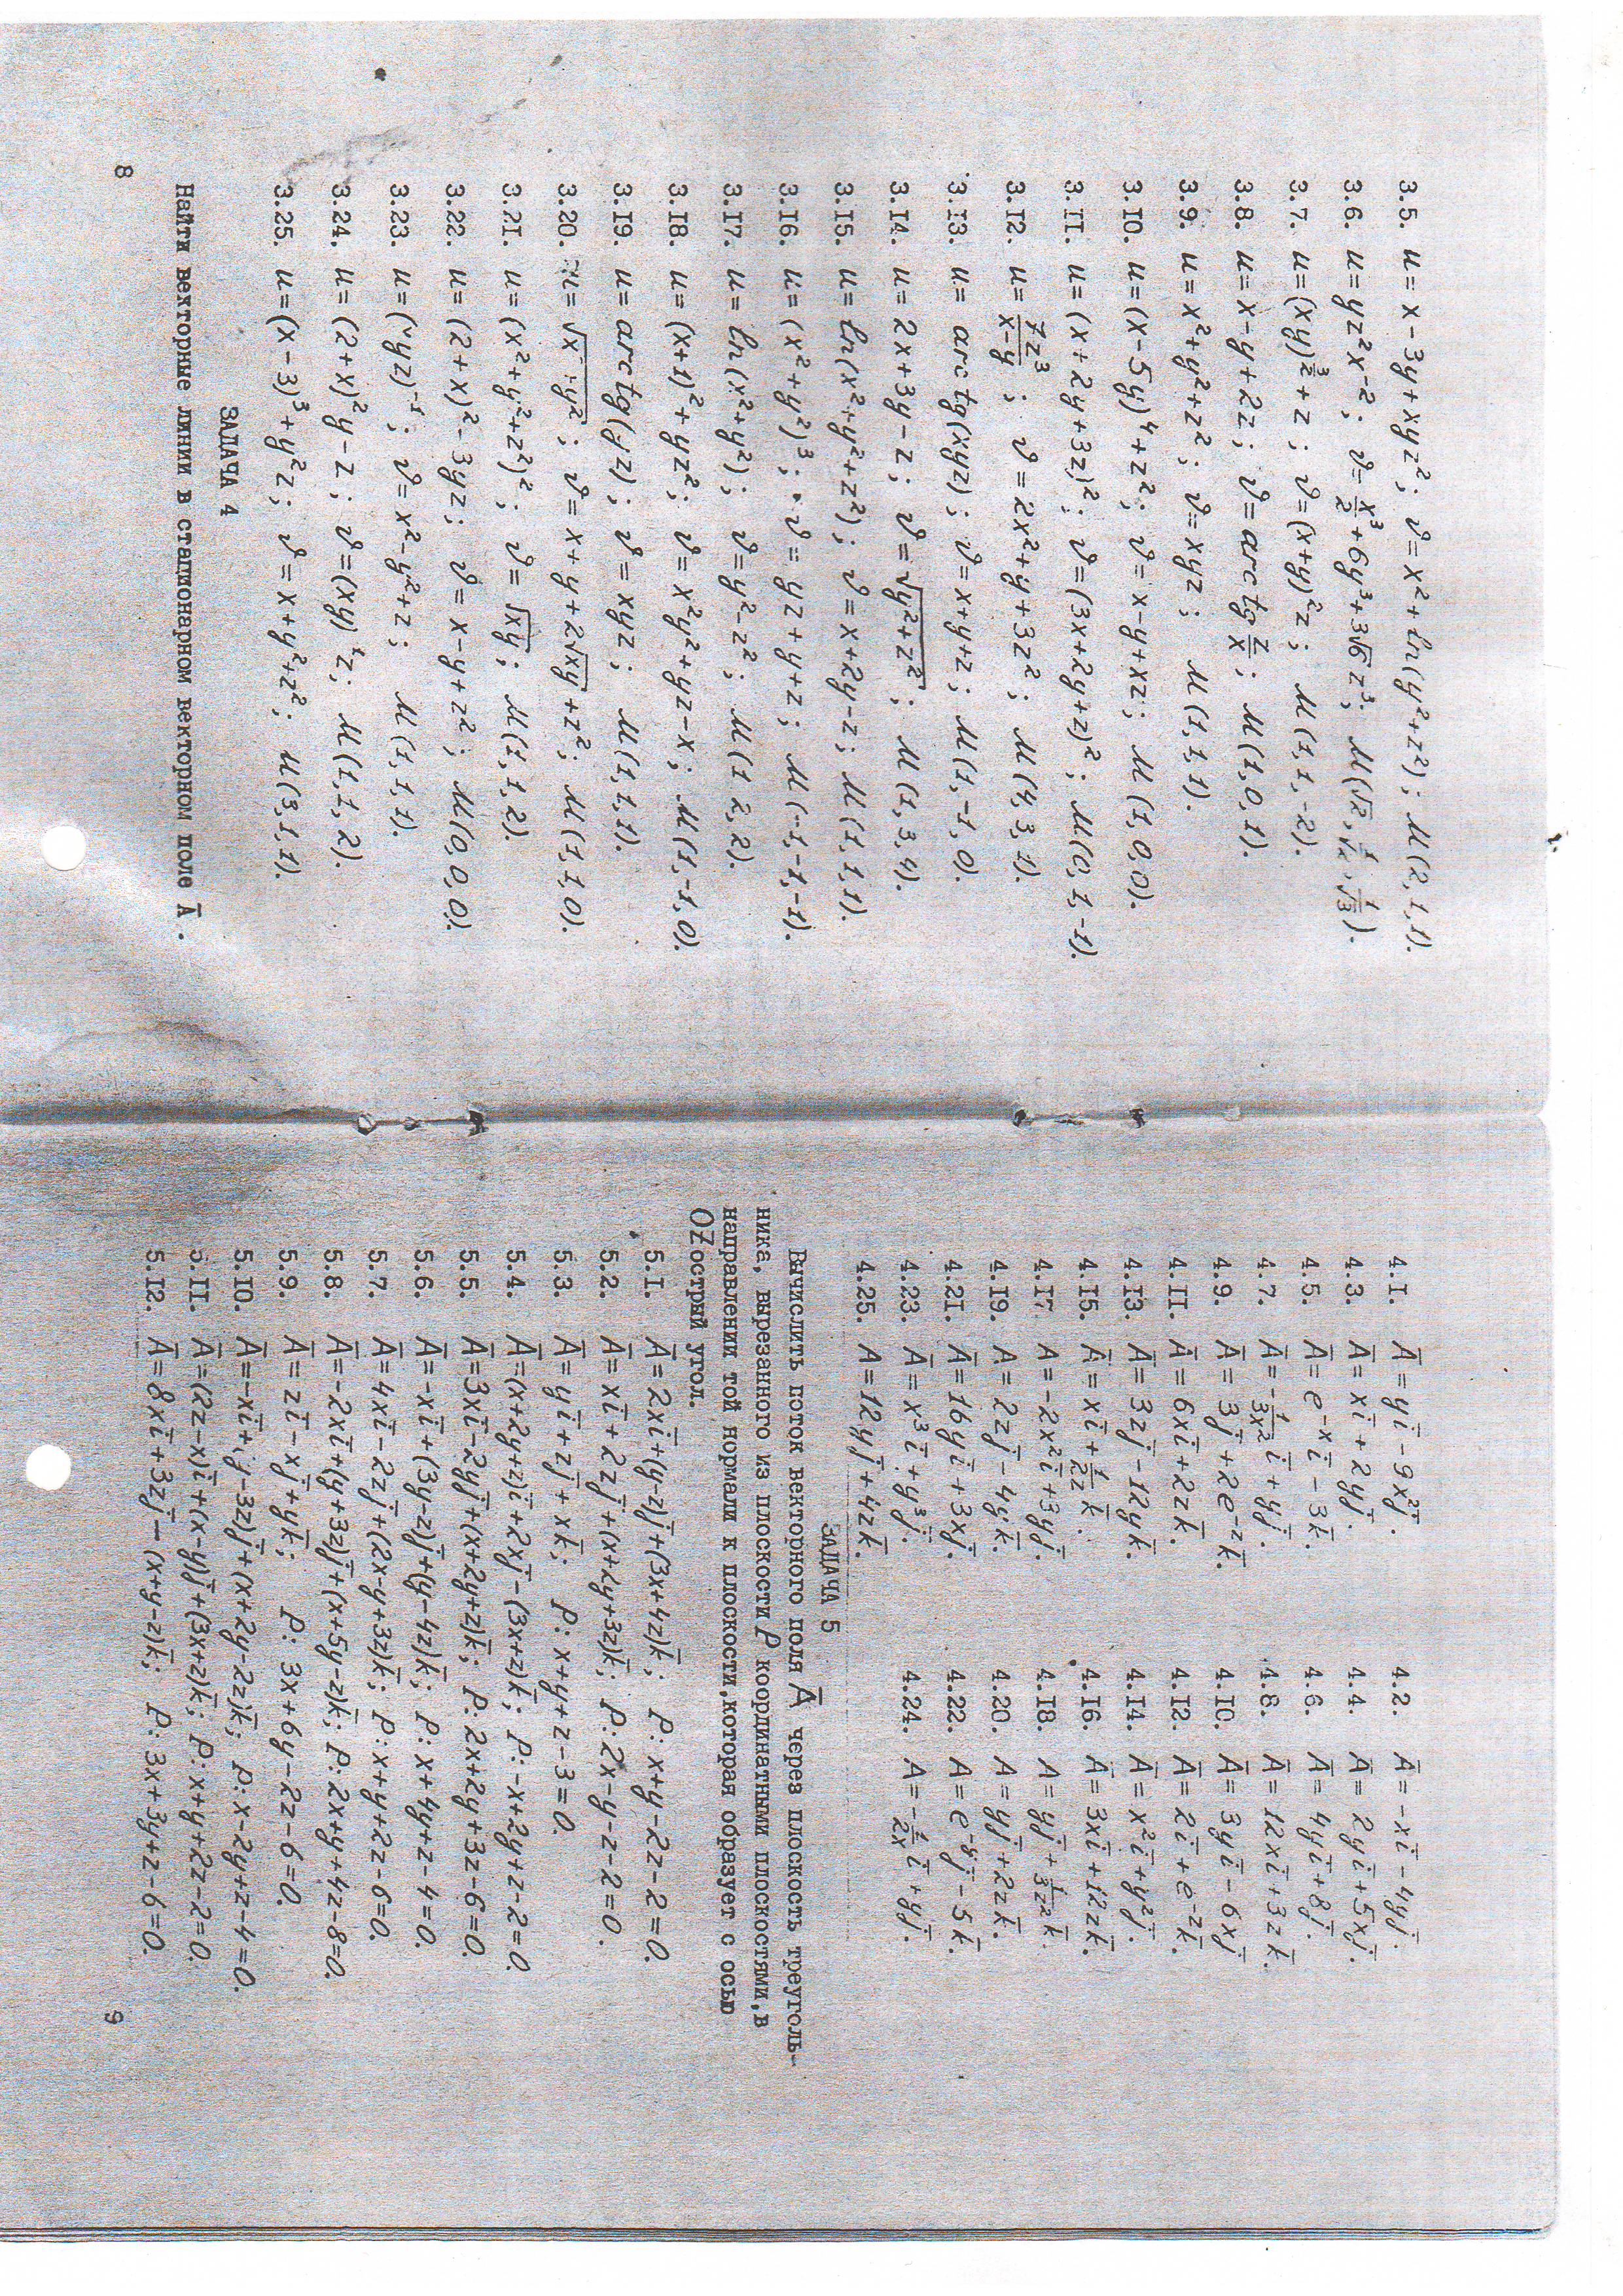 3.5. u = x - 3y + xyz²; v = x² + ln(y² + z²); M(2, 1, 1).
3.6. u = yz²x⁻²; v = x³/2 + 6y³ + 3√6 z³; M(√2, 1/√2, 1/√3).
3.7. u = (xy)³/z + z; v = (x+y)²z; M(1, 1, -2).
3.8. u = x - y + 2z; v = arctg z/x; M(1, 0, 1).
3.9. u = x² + y² + z²; v = xyz; M(1, 1, 1).
3.10. u = (x - 5y)⁴ + z²; v = x - y + xz; M(1, 0, 0).
3.11. u = (x + 2y + 3z)²; v = (3x + 2y + z)²; M(0, 1, -1).
3.12. u = z³/(x-y); v = 2x² + y + 3z²; M(4, 3, 1).
3.13. u = arctg(xyz); v = x + y + z; M(1, -1, 0).
3.14. u = 2x + 3y - z; v = √(y² + z²); M(1, 3, 4).
3.15. u = ln(x² + y² + z²); v = x + 2y - z; M(1, 1, 1).
3.16. u = (x² + y²)³; v = yz + y + z; M(-1, -1, -1).
3.17. u = ln(x² + y²); v = y² - z²; M(1, 2, 2).
3.18. u = (x+1)² + yz²; v = x²y² + yz - x; M(1, -1, 0).
3.19. u = arctg(yz); v = xyz; M(1, 1, 1).
3.20. u = √(x + y²); v = x + y + 2√xy + z²; M(1, 1, 0).
3.21. u = (x² + y² + z²)²; v = √xy; M(1, 1, 2).
3.22. u = (2 + x)² - 3yz; v = x - y + z²; M(0, 0, 0).
3.23. u = (xyz)⁻¹; v = x² - y² + z; M(1, 1, 1).
3.24. u = (2 + x)²y - z; v = (xy)²z; M(1, 1, 2).
3.25. u = (x - 3)³ + y²z; v = x + y² + z²; M(3, 1, 1).
ЗАДАЧА 4
Найти векторные линии в стационарном векторном поле Ā.
8
4.1. Ā = yī - 9xj̄. 4.2. Ā = -xī - 4yj̄.
4.3. Ā = xī + 2yj̄. 4.4. Ā = 2yī + 5xj̄.
4.5. Ā = e⁻ˣī - 3k̄. 4.6. Ā = 4yī + 8j̄.
4.7. Ā = -1/(3x²) ī + yj̄. 4.8. Ā = 12xī + 3zk̄.
4.9. Ā = 3j̄ + 2e⁻ᶻk̄. 4.10. Ā = 3yī - 6xj̄
4.11. Ā = 6xī + 2zk̄. 4.12. Ā = 2ī + e⁻ᶻk̄.
4.13. Ā = 3zj̄ - 12yk̄. 4.14. Ā = x²ī + y²j̄.
4.15. Ā = xī + 1/(2z) k̄. 4.16. Ā = 3xī + 12zk̄.
4.17. Ā = -2x²ī + 3yj̄. 4.18. Ā = yj̄ + 1/(3z²) k̄.
4.19. Ā = 2zj̄ - 4yk̄. 4.20. Ā = yj̄ + 2zk̄.
4.21. Ā = 16yī + 3xj̄. 4.22. Ā = e⁻ʸj̄ - 5k̄.
4.23. Ā = x³ī + y³j̄. 4.24. Ā = -1/(2x) ī + yj̄.
4.25. Ā = 12yj̄ + 4zk̄.
ЗАДАЧА 5
Вычислить поток векторного поля Ā через плоскость треуголь-
ника, вырезанного из плоскости P координатными плоскостями, в
направлении той нормали к плоскости, которая образует с осью
OZ острый угол.
5.1. Ā = 2xī + (y-z)j̄ + (3x+4z)k̄; P: x+y-2z-2=0.
5.2. Ā = xī + 2zj̄ + (x+2y+3z)k̄; P: 2x-y-z-2=0.
5.3. Ā = yī + zj̄ + xk̄; P: x+y+z-3=0.
5.4. Ā = (x+2y+z)ī + 2xj̄ - (3x+z)k̄; P: -x+2y+z-2=0.
5.5. Ā = 3xī - 2yj̄ + (x+2y+z)k̄; P: 2x+2y+3z-6=0.
5.6. Ā = -xī + (3y-z)j̄ + (y-4z)k̄; P: x+4y+z-4=0.
5.7. Ā = 4xī - 2zj̄ + (2x-y+3z)k̄; P: x+y+2z-6=0.
5.8. Ā = -2xī + (y+3z)j̄ + (x+5y-z)k̄; P: 2x+y+4z-8=0.
5.9. Ā = zī - xj̄ + yk̄; P: 3x+6y-2z-6=0.
5.10. Ā = -xī + (y-3z)j̄ + (x+2y-2z)k̄; P: x-2y+z-4=0.
5.11. Ā = (2z-x)ī + (x-y)j̄ + (3x+z)k̄; P: x+y+2z-2=0.
5.12. Ā = 8xī + 3zj̄ - (x+y-z)k̄; P: 3x+3y+z-6=0.
9